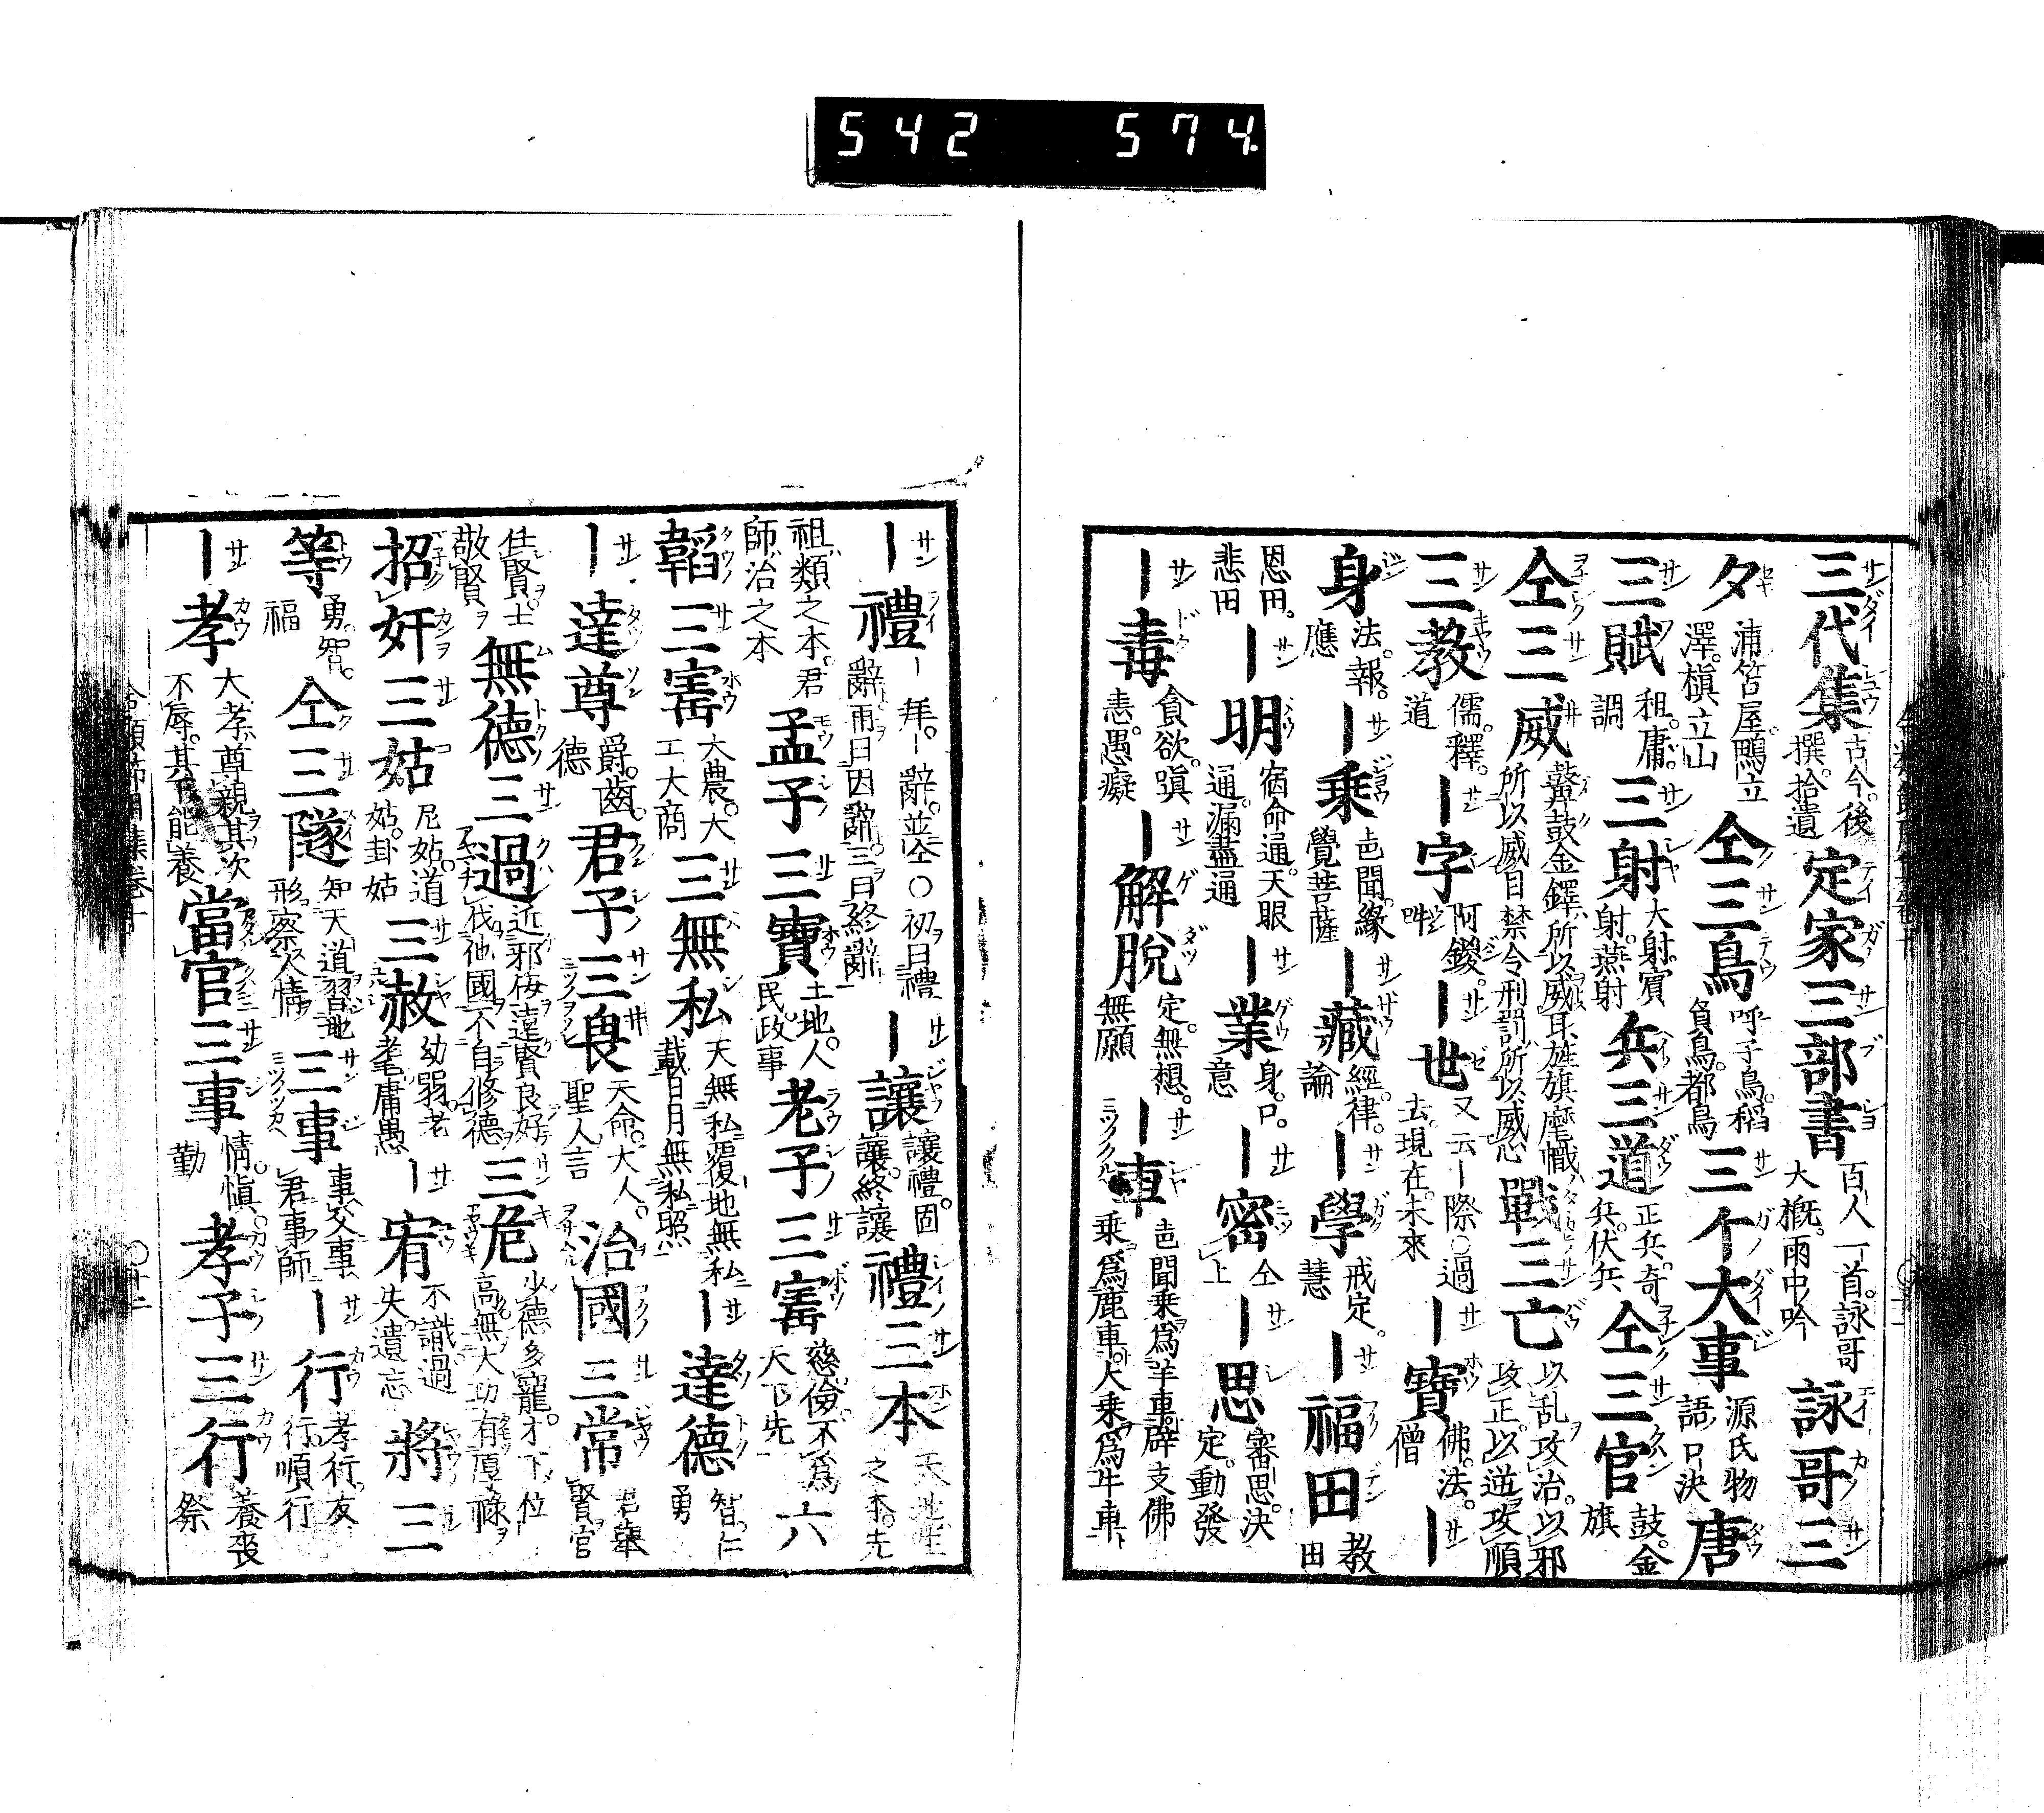 542 574
三代集 古今。後撰。拾遺 定家三部書 百人一首。詠哥大概。雨中吟 詠哥三
夕 浦笘屋。鴫立澤。槙立山 仝三鳥 呼子鳥。稻負鳥。都鳥 三个大事 源氏物語口决 唐
三賦 租。庸。調 三射 大射。賓射。燕射 兵三道 正兵。奇兵。伏兵 仝三官 鼓。金旗
仝三威 鼙鼓金鐸所以威耳旌旗麾幟所以威目禁令刑罰所以威心 戰三亡 以乱攻治。以邪攻正。以逆攻順
三教 儒。釋。道 ー字 阿。鑁。吽 ー世 又云ー際○過去。現在。未來 ー寶 佛。法。僧 ー
身 法。報。應 ー乗 聲聞緣覺菩薩 ー藏 經。律。論 ー學 戒。定。慧 ー福田 教田
恩田。悲田 ー明 宿命通。天眼通。漏盡通 ー業 身。口。意 ー密 仝上 ー思 審思。决定。動發
ー毒 貪欲。嗔恚。愚癡 ー解脫 定。無想。無願 ー車 聲聞乗爲羊車。辟支佛乗爲鹿車。大乗爲牛車
ー禮 ー拜。ー辭。並仝○初日禮辭再日因辭三日終辭 ー讓 讓禮。固讓。終讓 禮三本 天地生之本。先
祖類之本。君師治之本 孟子三寶 土地。人民。政事 老子三寶 慈。儉。不爲天下先 六
韜三寶 大農。大工。大商 三無私 天無私覆地無私載日月無私照 ー達德 智。仁勇
ー達尊 爵。齒。德 君子三畏 天命。大人。聖人言 治國三常 君以舉賢官
仕賢士敬賢 無德三過 近邪侮遠賢良好伐他國不自修德 三危 少德多寵。才下位高無大功有厚祿
招奸三姑 尼姑。道姑。卦姑 三赦 幼弱。老耄。庸愚 ー宥 不識。過失。遺忘 將三
等 勇。智。福 仝三隧 知天道習地形察人情 三事 事父事君事師 ー行 孝行。友行。順行
ー孝 大孝尊親其次不辱。其下能養 當官三事 情。愼。勤 孝子三行 養喪祭